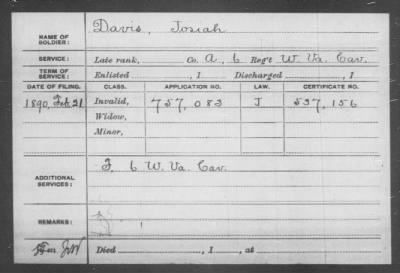 NAME OF SOLDIER: Davis, Josiah
SERVICE: Late rank, Co. A, 6 Reg't W. Va. Cav.
TERM OF SERVICE: Enlisted , 1 Discharged , 1
DATE OF FILING. CLASS. APPLICATION NO. LAW. CERTIFICATE NO.
1890, Feb. 21 Invalid, 757,083 J 537,156
Widow,
Minor,
ADDITIONAL SERVICES: F. 6 W. Va. Cav.
REMARKS:
Died , 1 , at